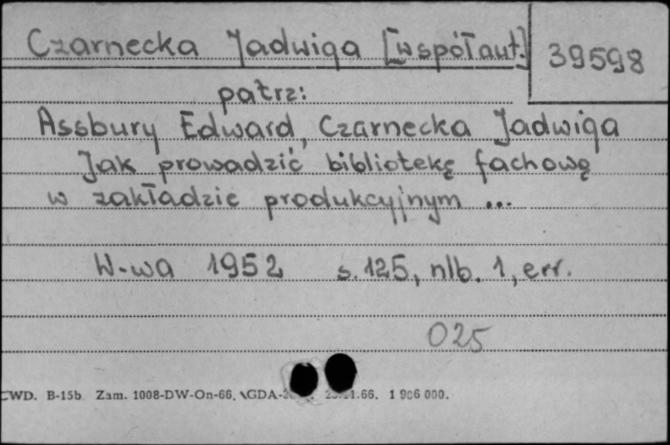 Czarnecka Jadwiga [współaut.]
39598
patrz:
Assbury Edward, Czarnecka Jadwiga
Jak prowadzić bibliotekę fachową
w zakładzie produkcyjnym ...
W-wa 1952 s. 125, nlb. 1, err.
025
CWD. B-15b. Zam. 1008-DW-On-66. GDA- .66. 1 906 000.